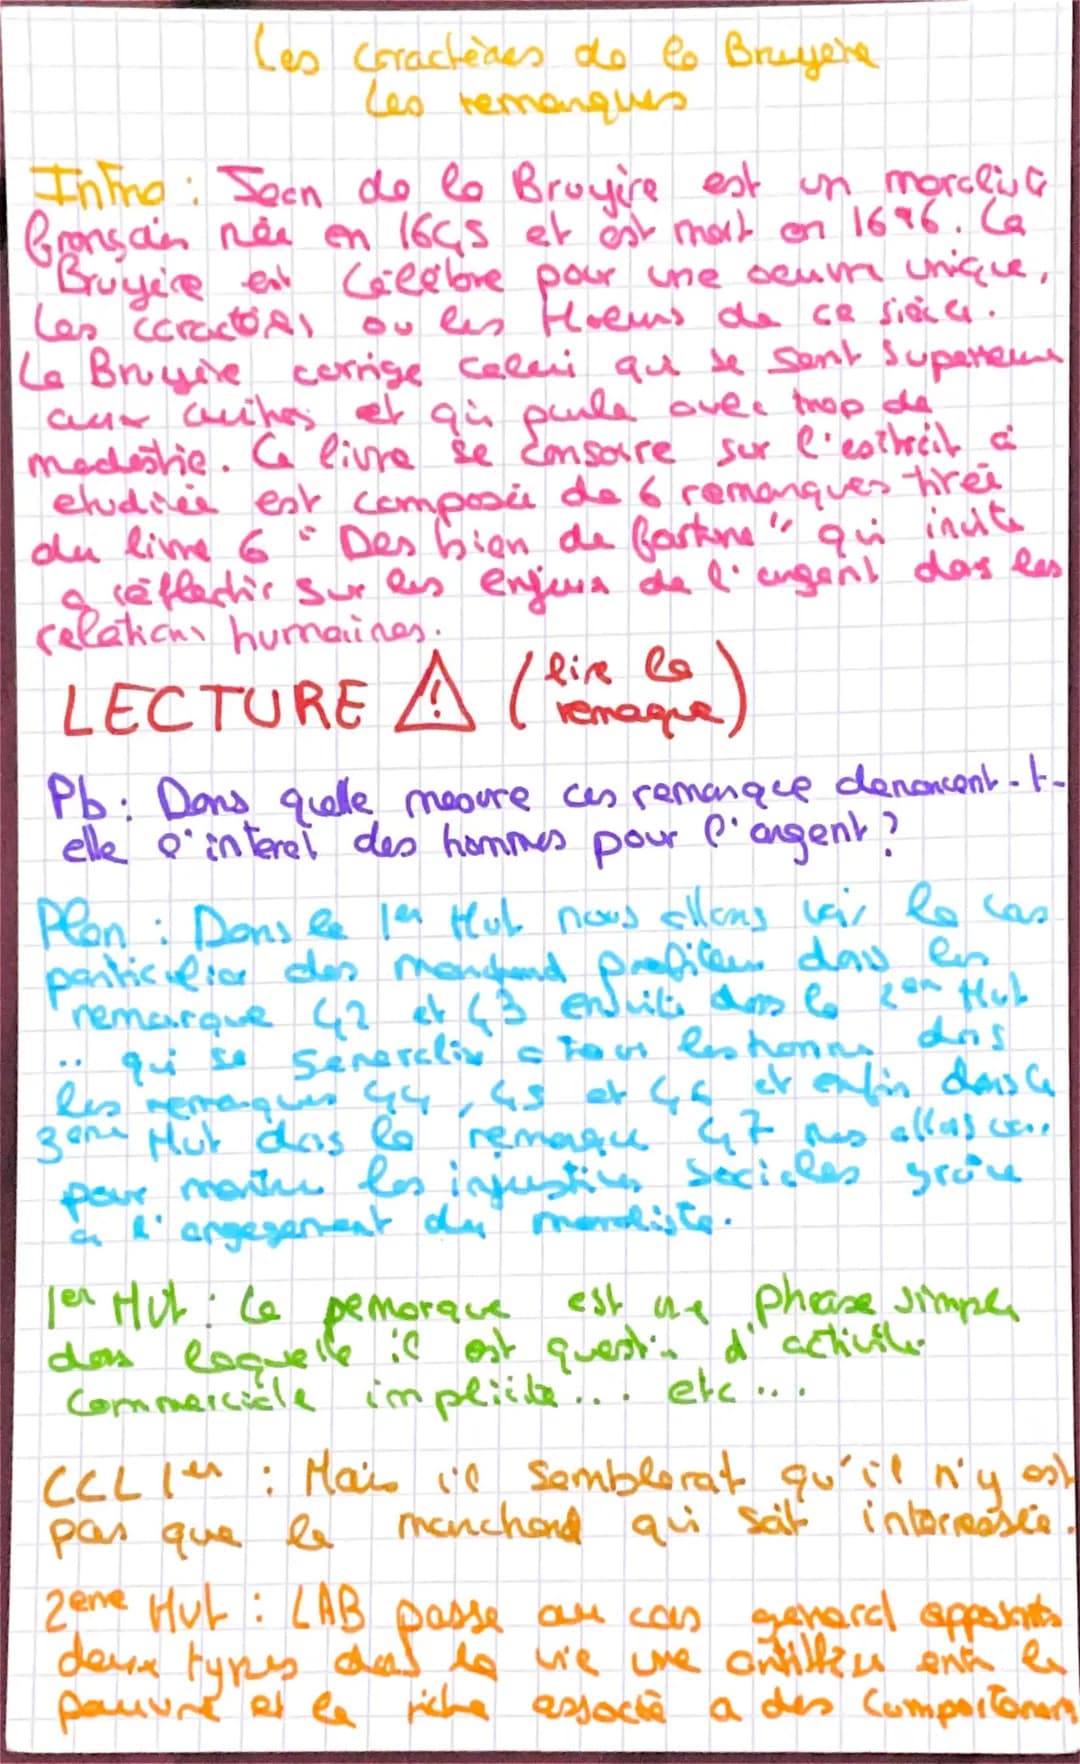 Les caractères de la Bruyère
Les remarques
Intro : Jean de la Bruyère est un moraliste
français née en 1645 et est mort en 1696. La
Bruyère est célèbre pour une oeuvre unique,
Les caractères ou les Moeurs de ce siècle.
La Bruyère corrige celui qui se sent superieur
aux autres et qui parle avec trop de
modestie. Ce livre se consacre sur l'extrait à
etudiée est composée de 6 remarques tirée
du livre 6 "Des bien de fortune" qui invite
a réflechir sur les enjeux de l'argent dans les
relations humaines.
LECTURE ⚠ (lire la
remaque)
Pb : Dans quelle mesure ces remarque denoncent-t-
elle l'interet des hommes pour l'argent ?
Plan : Dans le 1er Mvt nous allons voir le cas
particulier des marchand profiteur dans les
remarque 42 et 43 ensuite dans le 2em Mvt
.. qui se generalise a tous les homme dans
les remarques 44, 45 et 46 et enfin dans le
3eme Mvt dans la remarque 47 nous allons voir
pour montrer les injustices sociales grâce
a l'angegement du moraliste.
1er Mvt : La remarque est une phrase simple
dans laquelle il est question d'activité
commerciale implicite... etc...
CCL 1er : Mais il semblerat qu'il n'y est
pas que le marchand qui soit interressée.
2eme Mvt : LAB passe au cas general
deux types dans la vie une entre le
pauvre et le riche associé a des comportement